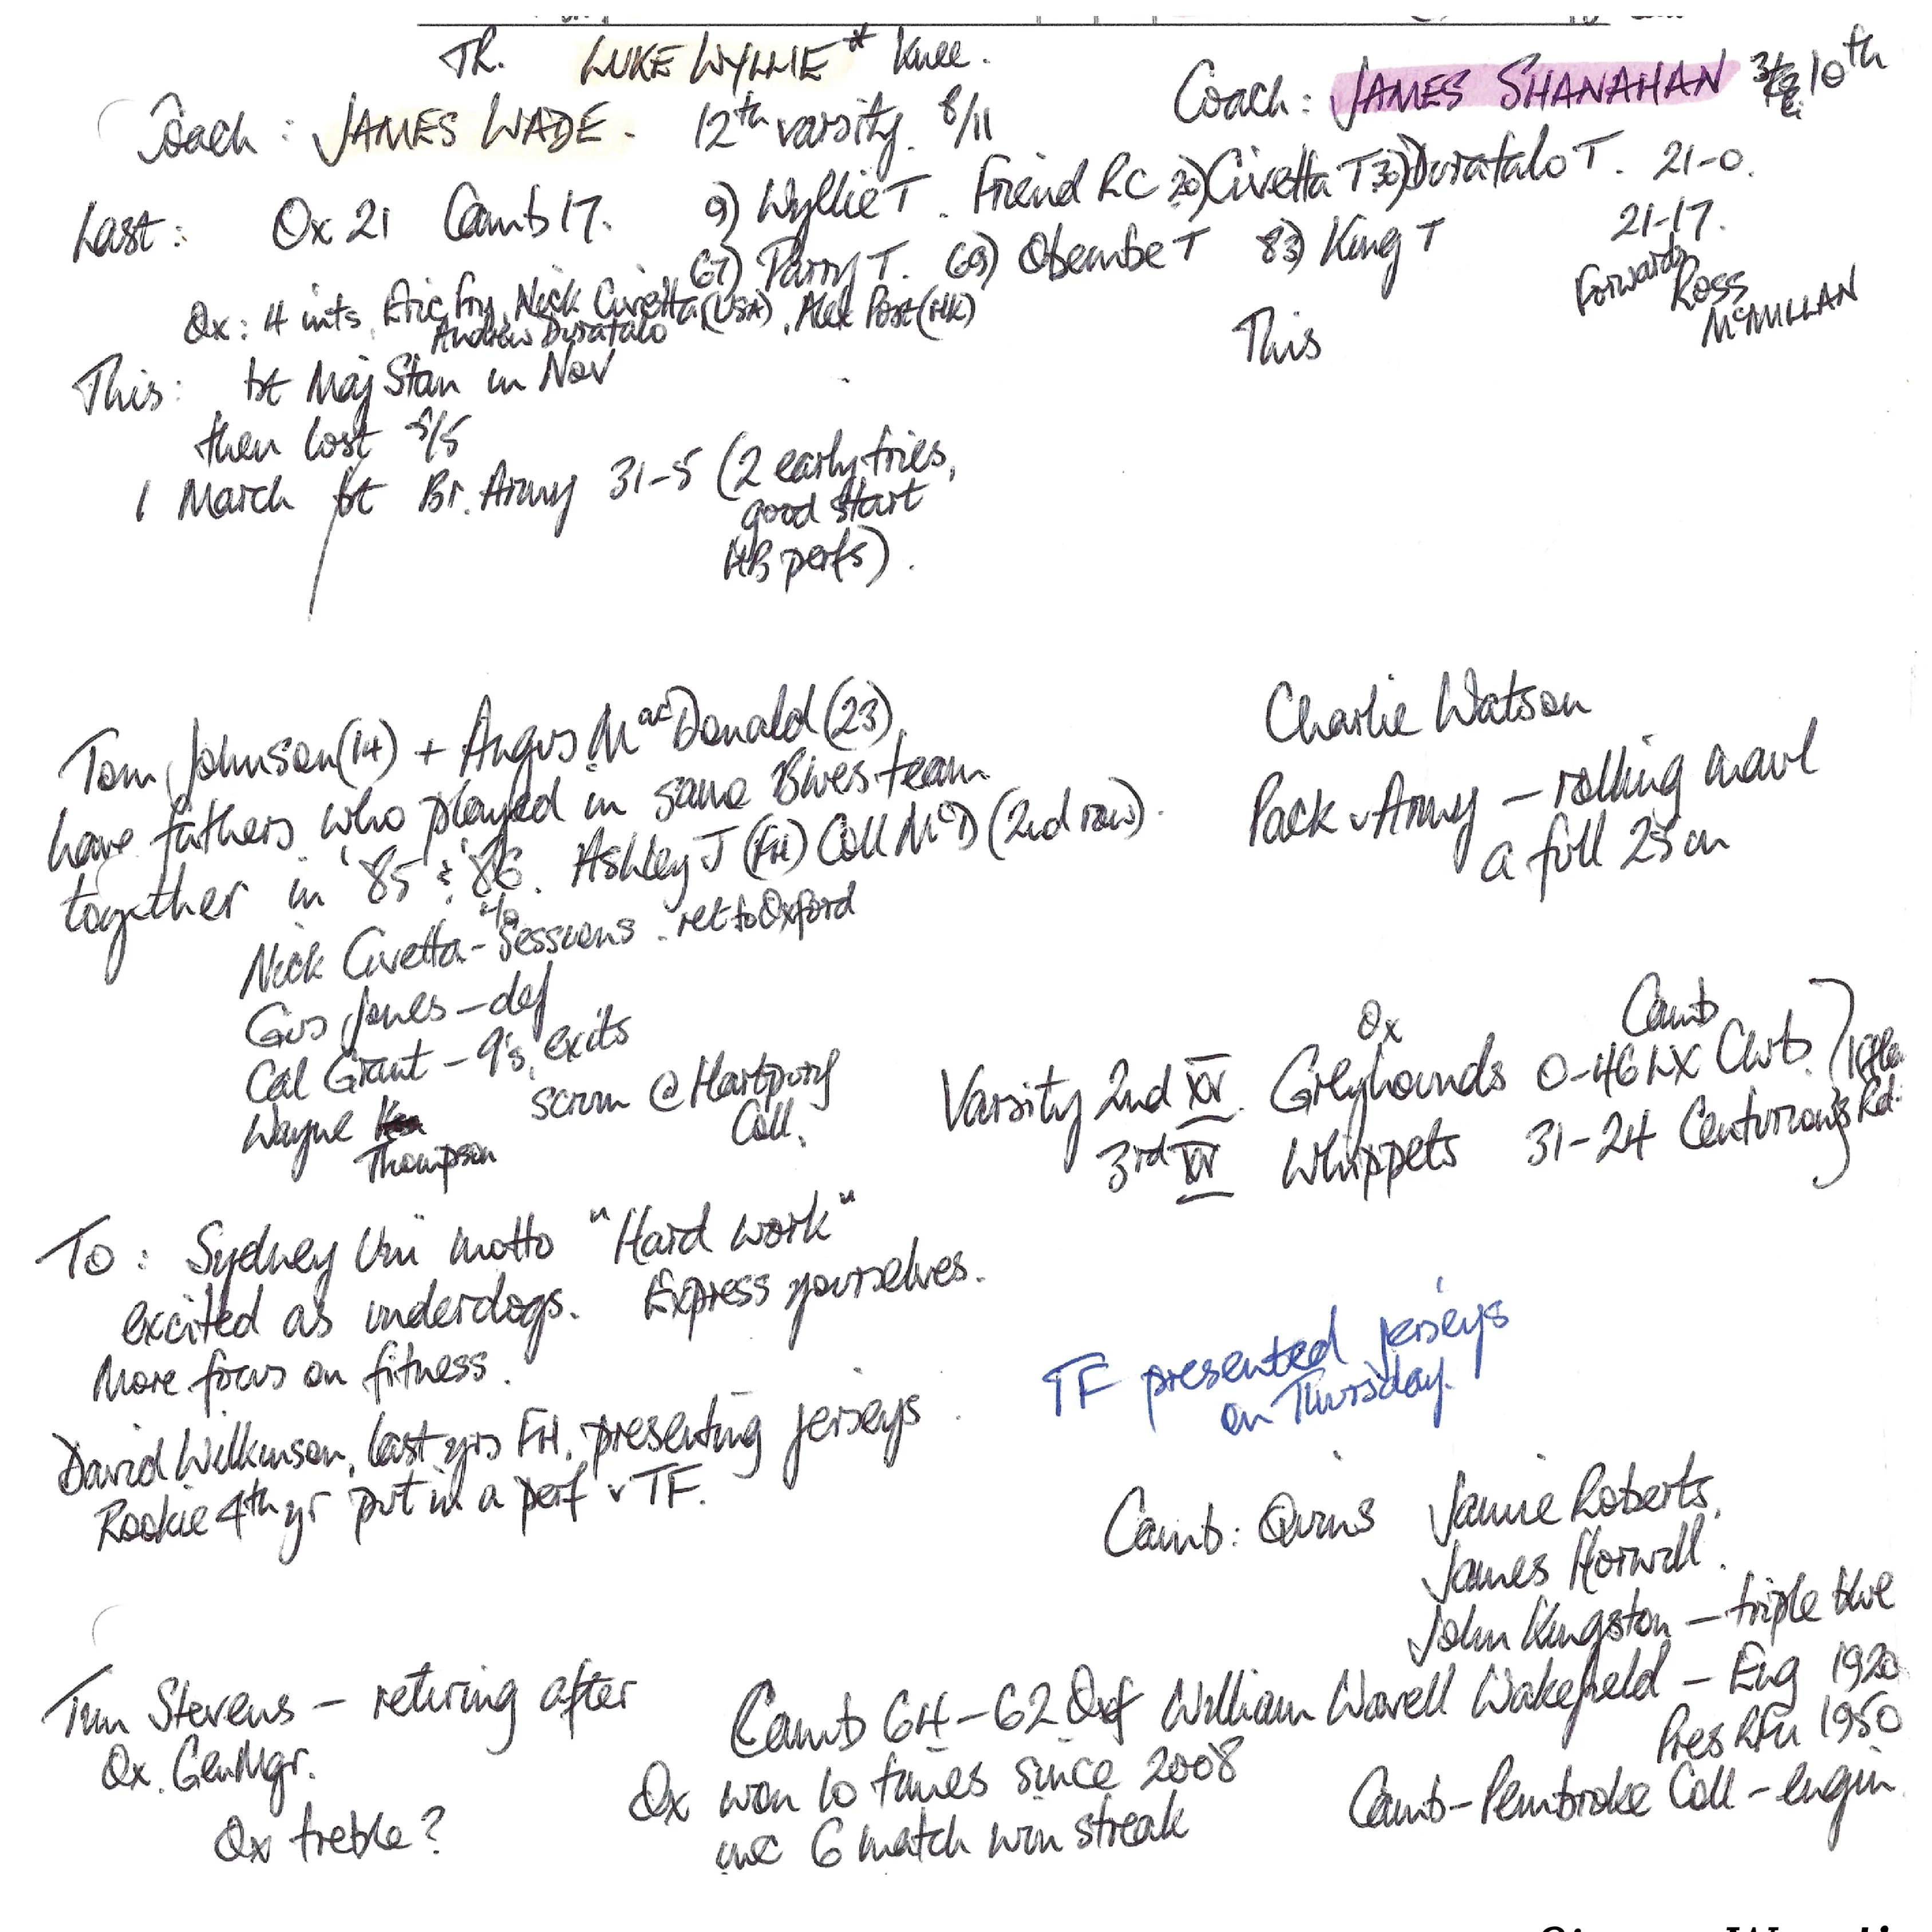 TR. LUKE WYLLIE* Knee.
Coach: JAMES WADE. 12th varsity. 8/11
Coach: JAMES SHANAHAN 10th
Last: Ox 21 Camb 17. 9) Wyllie T. Friend RC 20) Civetta T 30) Duratalo T. 21-0.
67) Parry T. 69) Obembe T 83) King T 21-17.
Ox: 4 ints. Eric Fry, Nick Civetta (USA), Alex Post (HK)
Andrew Duratalo
Forwards Ross
McMILLAN
This: bt Maj Stan in Nov
This
then lost 5/5
1 March bt Br. Army 31-5 (2 early tries,
good start
HB perfs).
Tom Johnson (14) + Angus MacDonald (23)
have fathers who played in same Blues team
together in '85 & '86. Ashley J (FH) Coll McD (2nd row).
Charlie Watson
Pack v Army – rolling maul
a full 25m
Nick Civetta - Sessions. ret to Oxford
Gus Jones – def
Cal Grant – 9's, exits
Wayne Thompson scrum @ Hartpury
Coll.
Ox Camb
Varsity 2nd XV. Greyhounds 0-46 LX Club.
3rd XV Whippets 31-24 Centurions Rd.
To: Sydney Uni motto "Hard work"
excited as underdogs. Express yourselves.
More focus on fitness.
TF presented jerseys
on Thursday.
David Wilkinson, last yrs FH, presenting jerseys.
Rookie 4th yr put in a perf v TF.
Camb: Quins Jamie Roberts,
James Horwill.
John Kingston – triple blue
Tim Stevens – retiring after
Ox. Gen Mgr.
Ox treble?
Camb 64-62 Oxf
Ox won 10 times since 2008
inc 6 match win streak
William Wavell Wakefield – Eng 1920
Pres RFU 1950
Camb - Pembroke Coll - engin.